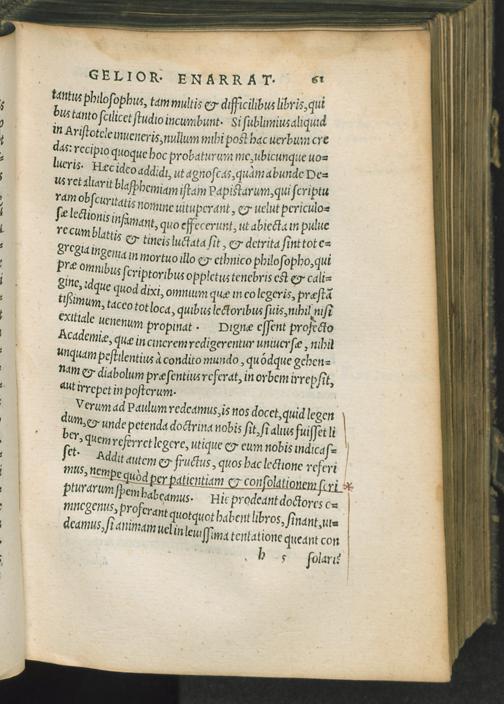 GELIOR· ENARRAT· 61
tantus philosophus, tam multis & difficilibus libris, qui
bus tanto scilicet studio incumbunt· Si sublimius aliquid
in Aristotele inueneris, nullum mihi post hac uerbum cre
das: recipio quoque hoc probaturum me, ubicunque uo=
lueris· Hæc ideo addidi, ut agnoscas, quàm abunde De=
us retaliarit blasphemiam istam Papistarum, qui scriptu
ram obscuritatis nomine uituperant, & uelut periculo=
sæ lectionis infamant, quo effecerunt, ut abiecta in pulue
re cum blattis & tineis luctata sit, & detrita sint tot e=
gregia ingenia in mortuo illo & ethnico philosopho, qui
præ omnibus scriptoribus oppletus tenebris est & cali=
gine, idque quod dixi, omnium quæ in eo legeris, præstā
tissimum, taceo tot loca, quibus lectoribus suis, nihil nisi
exitiale uenenum propinat· Dignæ essent profecto
Academiæ, quæ in cinerem redigerentur uniuersæ, nihil
unquam pestilentius à condito mundo, quódque gehen=
nam & diabolum præsentius referat, in orbem irrepsit,
aut irrepet in posterum·
Verum ad Paulum redeamus, is nos docet, quid legen
dum, & unde petenda doctrina nobis sit, si alius fuisset li
ber, quem referret legere, utique & eum nobis indicas=
set· Addit autem & fructus, quos hac lectione referi
mus, nempe quòd per patientiam & consolationem scri
pturarum spem habeamus· Hic prodeant doctores o=
mnegenus, proferant quotquot habent libros, sinant, ui=
deamus, si animam uel in leuissima tentatione queant con
h 5 solari?